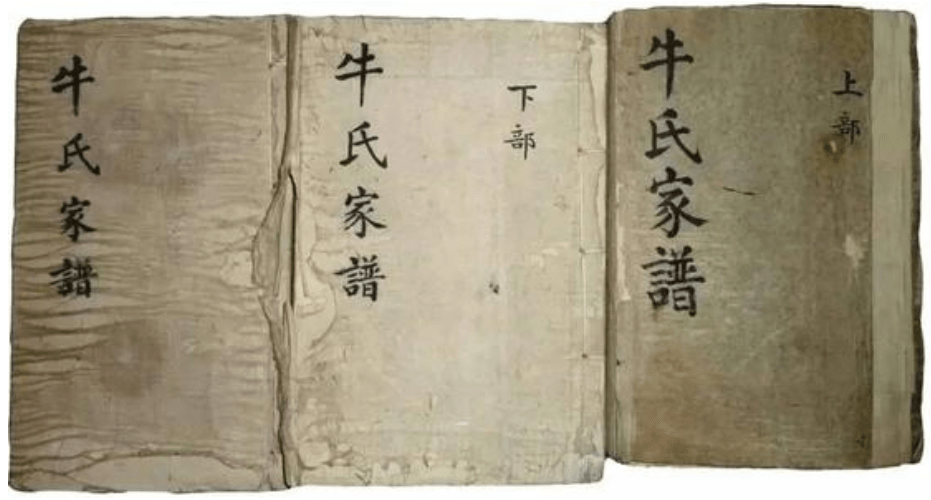 上部
牛氏家譜
下部
牛氏家譜
牛氏家譜